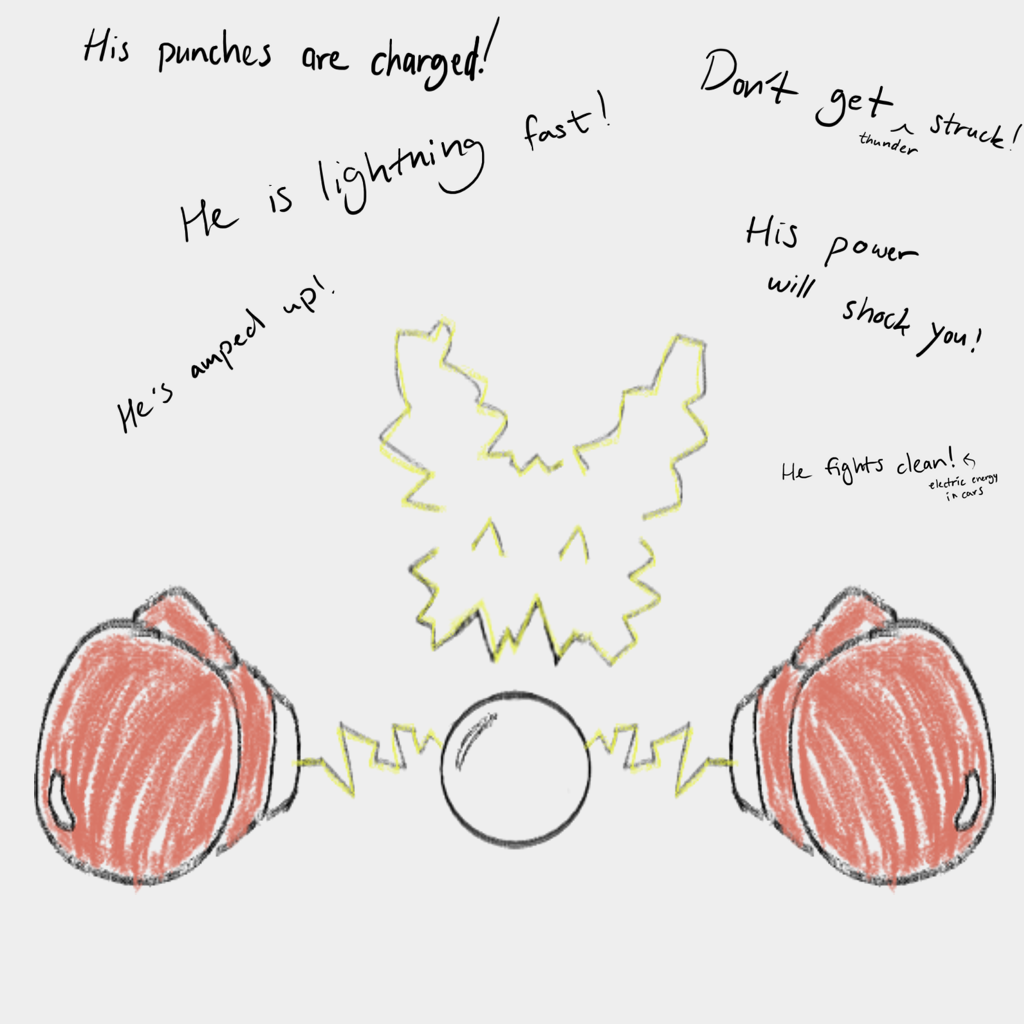 His punches are charged!
Don't get thunder struck!
He is lightning fast!
His power
will shock you!
He's amped up!
He fights clean!
electric energy
in cars